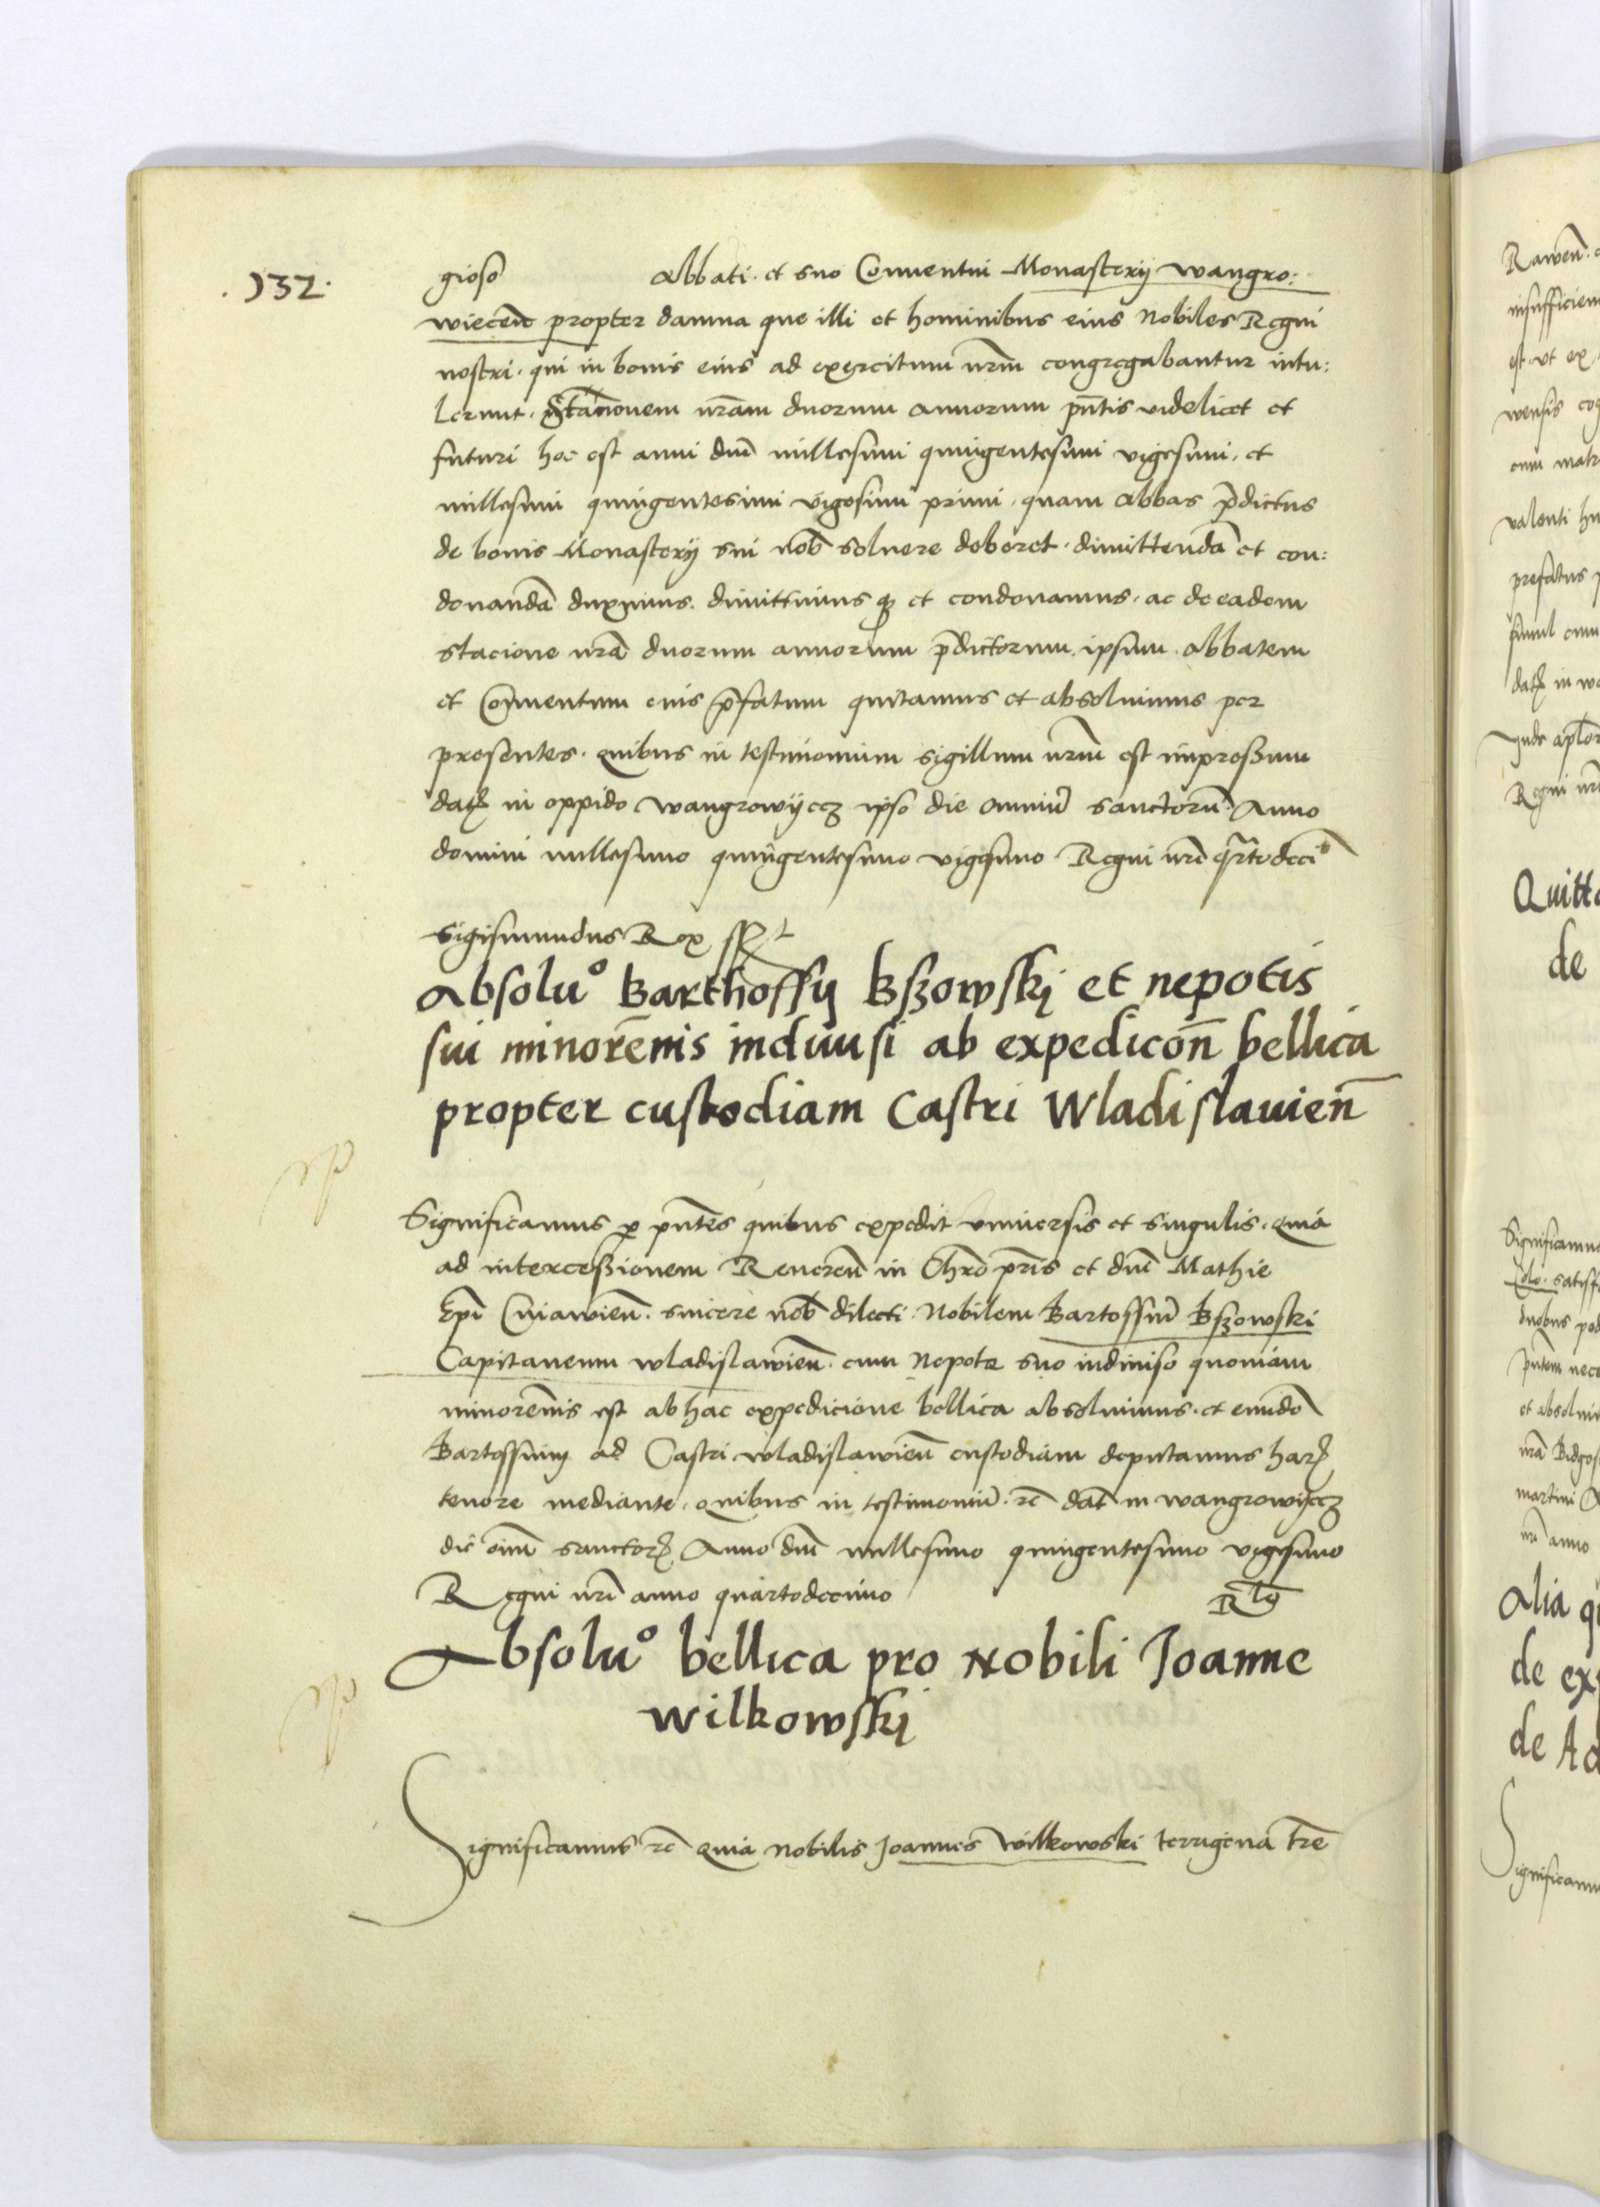 .132.
gioso abbati. et suo Conuentui Monasterij wangro:
wiecen̄ propter damna que illi et hominibus eius Nobiles Regni
nostri. qui in bonis eius ad exercitum nr̄m congregabantur intu:
lerunt. Stacionem nr̄am duorum annorum pn̄tis videlicet et
futuri hoc est anni dnī millesimi quingentesimi vigesimi. et
millesimi quingentesimi vigesimi primi. quam abbas p̄dictus
de bonis Monasterij sui nob̄ soluere deberet. dimittendā et con:
donandā duximus. dimittimus qȝ et condonamus. ac de eadem
stacione nr̄a duorum annorum p̄dictorum. ipsum abbatem
et Conuentum eius p̄fatum quitamus et absoluimus per
presentes. quibus in testimonium sigillum nr̄m est impressum
datȝ in oppido wangrowijecz ipso die omniū sanctorū. Anno
domini millesimo quingentesimo vigesimo Regni nr̄i qr̄todeciº
Sigismundus Rex sst
Absoluº Barthossij Bszowskj et nepotis
sui minorēnis indiuisi ab expedicōn̄ bellica
propter custodiam Castri Wladislauien̄
Significamus p̱ pn̄tes quibus expedit vniuersis et singulis. quia
ad intercessionem Reuerēn̄ in Chrō pr̄is et dnī Mathie
Epī Cuiawien̄. sincere nob̄ dilecti. Nobilem Bartossiū Bszowski
Capitaneum wladislawien̄. cum Nepote suo indiuiso quoniam
minorēnis est ab hac expedicione bellica absoluimus. et eundē
Bartossium ad Castri wladislawien̄ custodiam deputamus harȝ
tenore mediante. quibus in testimoniū. rc̄ dat̄ in wangrowijecz
die oīm̄ sanctorȝ Anno dnī millesimo quingentesimo vigesimo
Regni nr̄i anno quartodecimo
Absoluº bellica pro Nobili Joanne
wilkowskj
Significamus rc̄ quia nobilis Joannes wilkowski terrigena tr̄e
Rawen̄.
insufficien
est. vt ex
wensis
valenti
prefatus
simul
datȝ in
vnde
Regni
Quitt
de
Significam
et absolui
martini
anno
Alia
de
de
Significam